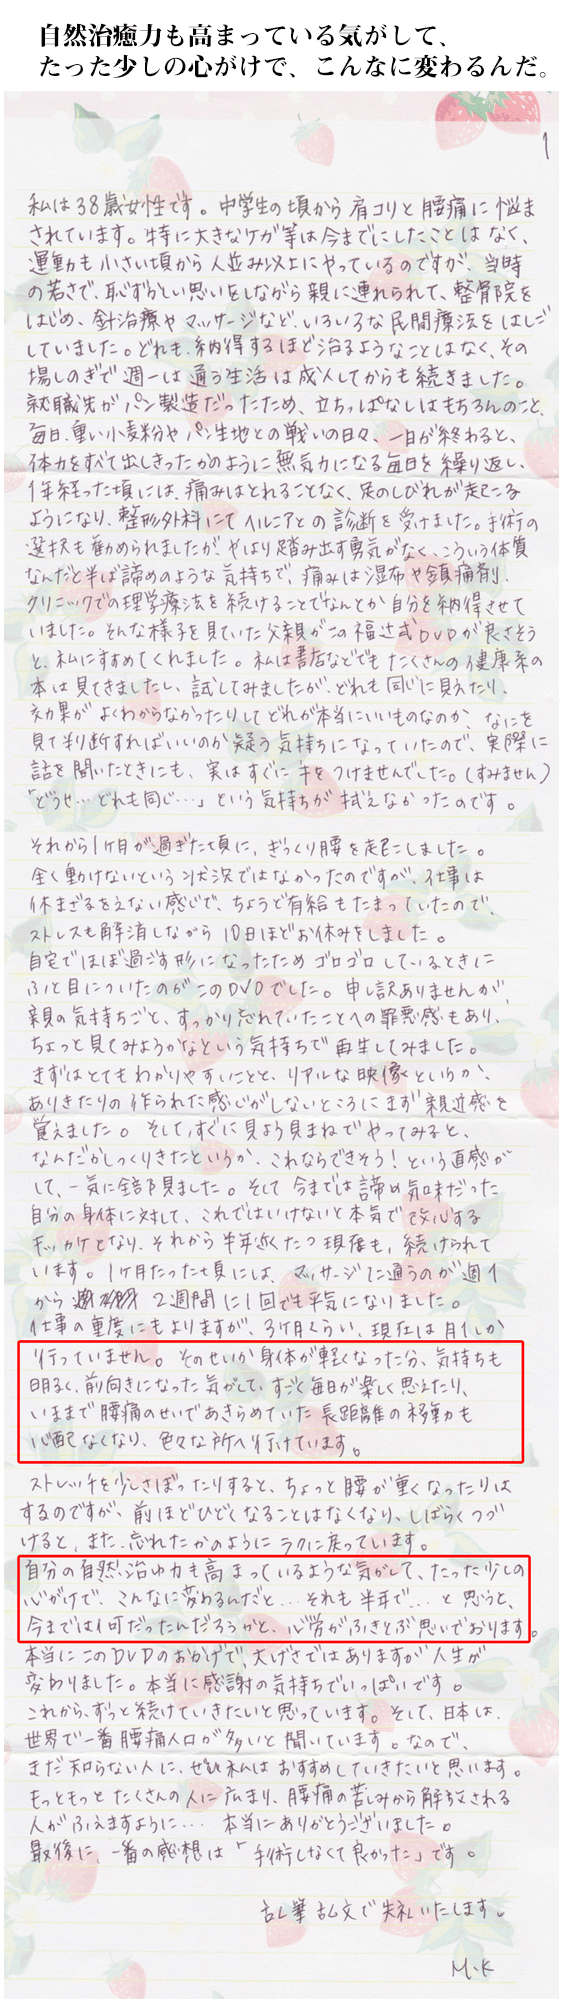 自然治癒力も高まっている気がして、
たった少しの心がけで、こんなに変わるんだ。
1
私は38歳女性です。中学生の頃から肩コリと腰痛に悩ま
されています。特に大きなケガ等は今までにしたことはなく、
運動も小さい頃から人並み以上にやっているのですが、当時
の若さで、恥ずかしい思いをしながら親に連れられて、整骨院を
はじめ、針治療やマッサージなど、いろいろな民間療法をはしご
していました。どれも、納得するほど治るようなことはなく、その
場しのぎで週一は通う生活は成人してからも続きました。
就職先がパン製造だったため、立ちっぱなしはもちろんのこと、
毎日、重い小麦粉やパン生地との戦いの日々、一日が終わると、
体力をすべて出しきったかのように無気力になる毎日を繰り返し、
1年経った頃には、痛みはとれることなく、足のしびれが起こる
ようになり、整形外科にてヘルニアとの診断を受けました。手術の
選択も勧められましたが、やはり踏み出す勇気がなく、こういう体質
なんだと半ば諦めのような気持ちで、痛みは湿布や鎮痛剤、
クリニックでの理学療法を続けることでなんとか自分を納得させて
いました。そんな様子を見ていた父親がこの福辻式DVDが良さそう
と、私にすすめてくれました。私は書店などでもたくさんの健康系の
本は見てきましたし、試してみましたが、どれも同じに見えたり、
効果がよくわからなかったりしてどれが本当にいいものなのか、なにを
見て判断すればいいのか疑う気持ちになっていたので、実際に
話を聞いたときにも、実はすぐに手をつけませんでした。(すみません)
「どうせ…どれも同じ…」という気持ちが拭えなかったのです。
それから1ヶ月が過ぎた頃に、ぎっくり腰を起こしました。
全く動けないという状況ではなかったのですが、仕事は
休まざるをえない感じで、ちょうど有給もたまっていたので、
ストレスも解消しながら10日ほどお休みをしました。
自宅でほぼ過ごす形になったためゴロゴロしているときに
ふと目についたのがこのDVDでした。申し訳ありませんが、
親の気持ちごと、すっかり忘れていたことへの罪悪感もあり、
ちょっと見てみようかなという気持ちで再生してみました。
まずはとてもわかりやすいことと、リアルな映像というか、
ありきたりの作られた感じがしないところにまず親近感を
覚えました。そして、すぐに見よう見まねでやってみると、
なんだかしっくりきたというか、これならできそう!という直感が
して、一気に全部見ました。そして今までは諦め気味だった
自分の身体に対して、これではいけないと本気で改心する
キッカケとなり、それから半年近くたつ現在も、続けられて
います。1ヶ月たった頃には、マッサージに通うのが週1
から 2週間に1回でも平気になりました。
仕事の重度にもよりますが、3ヶ月くらい、現在は月1しか
行っていません。そのせいか身体が軽くなった分、気持ちも
明るく、前向きになった気がして、すごく毎日が楽しく思えたり、
いままで腰痛のせいであきらめていた長距離の移動も
心配なくなり、色々な所へ行けています。
ストレッチを少しさぼったりすると、ちょっと腰が重くなったりは
するのですが、前ほどひどくなることはなくなり、しばらくつづ
けると、また、忘れたかのようにラクに戻っています。
自分の自然治ゆ力も高まっているような気がして、たった少しの
心がけで、こんなに変わるんだと…それも半年で…と思うと、
今までは何だったんだろうかと、心労がふきとぶ思いでおります。
本当にこのDVDのおかげで、大げさではありますが人生が
変わりました。本当に感謝の気持ちでいっぱいです。
これから、ずっと続けていきたいと思っています。そして、日本は、
世界で一番腰痛人口が多いと聞いています。なので、
まだ知らない人に、ぜひ私はおすすめしていきたいと思います。
もっともっとたくさんの人に広まり、腰痛の苦しみから解放される
人がふえますように… 本当にありがとうございました。
最後に、一番の感想は「手術しなくて良かった」です。
乱筆乱文で失礼いたします。
M.K